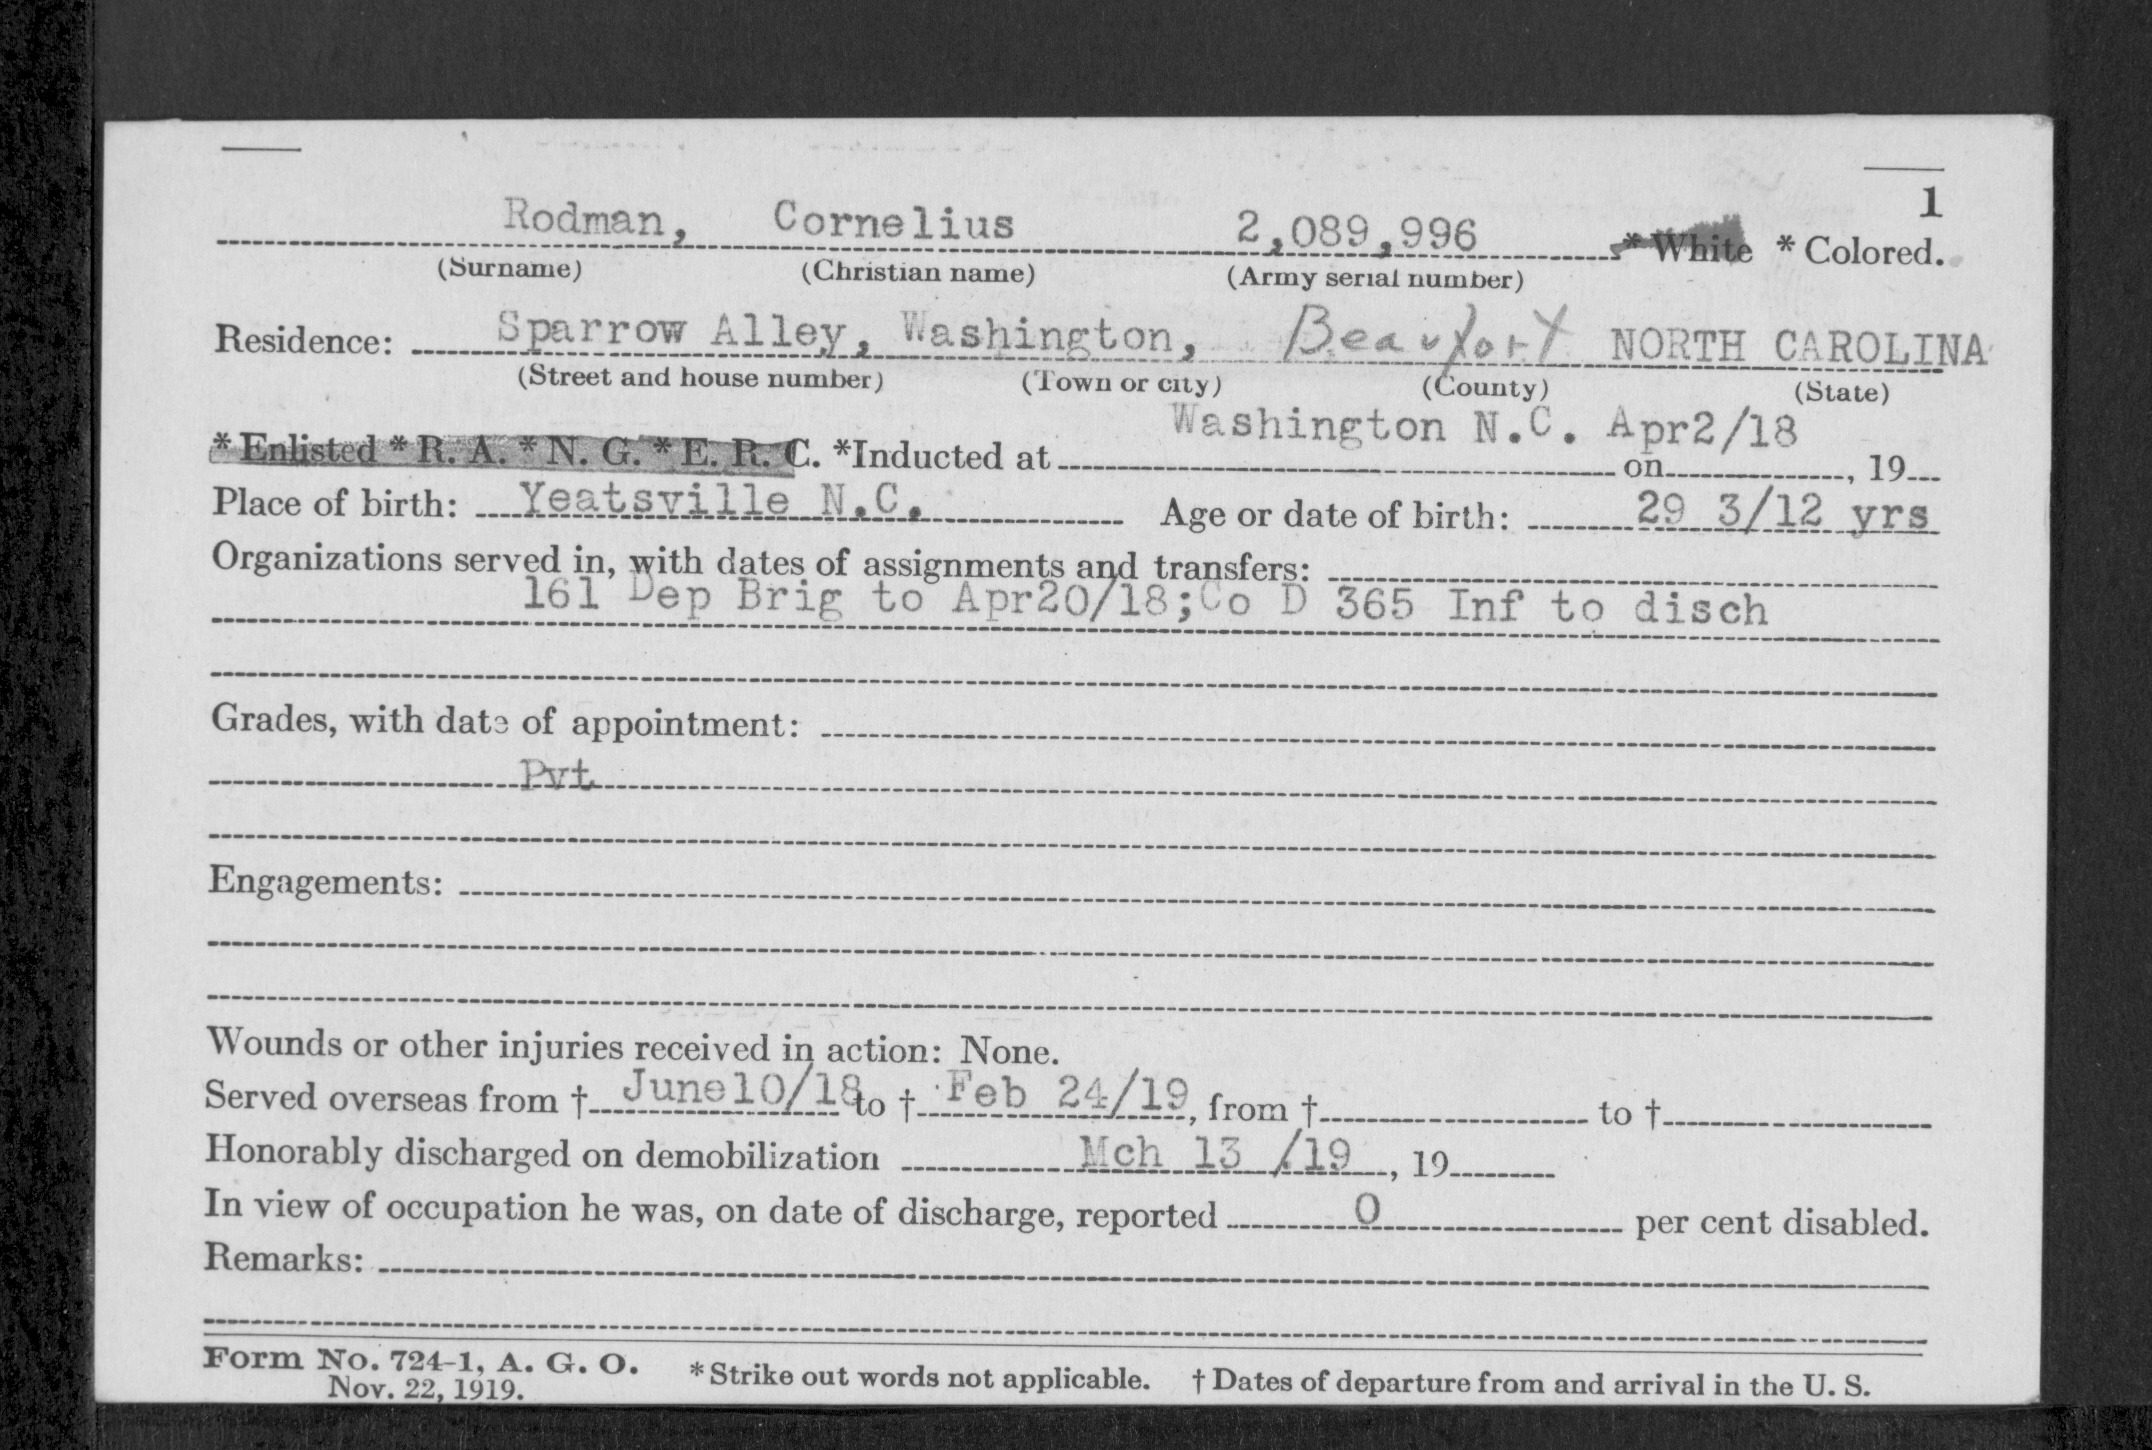 1
Rodman, Cornelius 2,089,996 * White * Colored.
(Surname) (Christian name) (Army serial number)
Residence: Sparrow Alley, Washington, Beaufort NORTH CAROLINA
(Street and house number) (Town or city) (County) (State)
Washington N.C. Apr2/18
* Enlisted * R. A. * N. G. * E. R. C. *Inducted at on , 19
Place of birth: Yeatsville N.C. Age or date of birth: 29 3/12 yrs
Organizations served in, with dates of assignments and transfers:
161 Dep Brig to Apr20/18;Co D 365 Inf to disch
Grades, with date of appointment:
Pvt
Engagements:
Wounds or other injuries received in action: None.
Served overseas from † June10/18 to † Feb 24/19, from † to †
Honorably discharged on demobilization Mch 13 /19 , 19
In view of occupation he was, on date of discharge, reported 0 per cent disabled.
Remarks:
Form No. 724-1, A. G. O. * Strike out words not applicable. † Dates of departure from and arrival in the U. S.
Nov. 22, 1919.